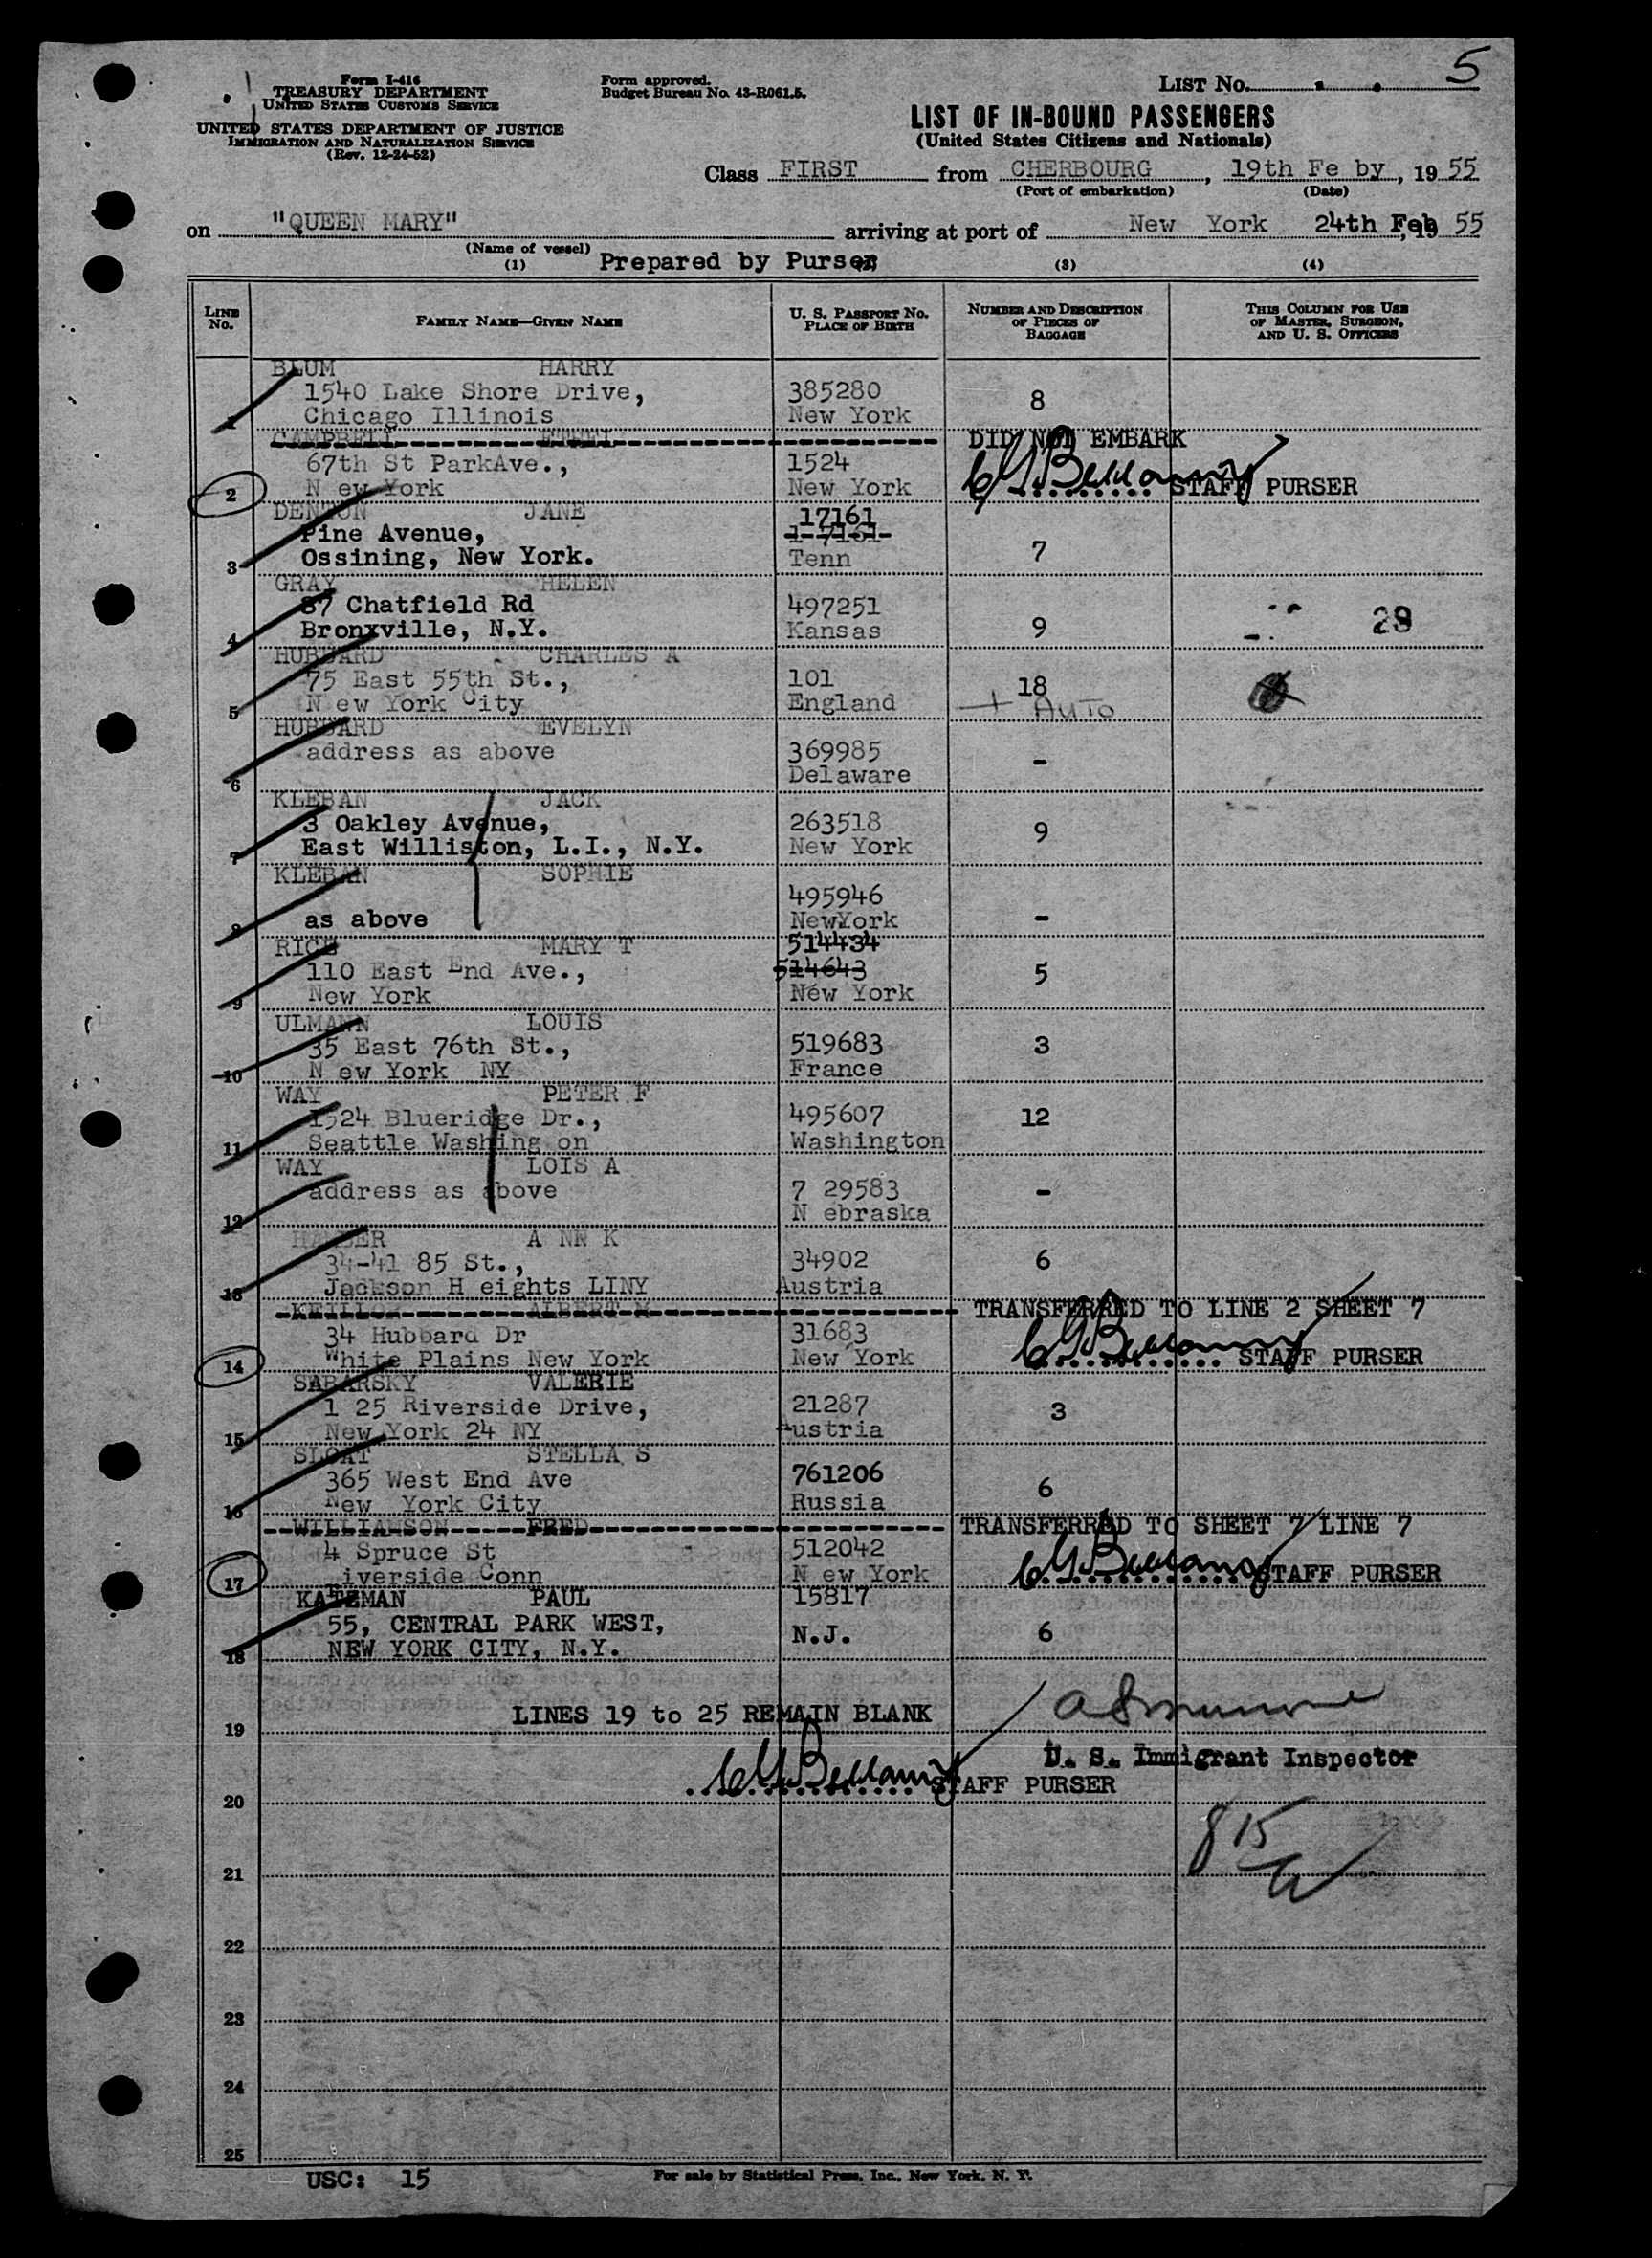 5
Form I-416
TREASURY DEPARTMENT
UNITED STATES CUSTOMS SERVICE
UNITED STATES DEPARTMENT OF JUSTICE
IMMIGRATION AND NATURALIZATION SERVICE
(Rev. 12-24-52)
Form approved.
Budget Bureau No. 43-R061.5.
LIST No.
LIST OF IN-BOUND PASSENGERS
(United States Citizens and Nationals)
Class FIRST from CHERBOURG, 19th Fe by, 19 55
(Port of embarkation) (Date)
on "QUEEN MARY" arriving at port of New York 24th Feb, 19 55
(Name of vessel)
(1) Prepared by Purser (2) (3) (4)
LINE No. FAMILY NAME—GIVEN NAME U. S. PASSPORT No. PLACE OF BIRTH NUMBER AND DESCRIPTION OF PIECES OF BAGGAGE THIS COLUMN FOR USE OF MASTER, SURGEON, AND U. S. OFFICERS
BLUM HARRY
1540 Lake Shore Drive, 385280 8
1 Chicago Illinois New York
CAMPBELL ETHEL DID NOT EMBARK
67th St ParkAve., 1524
2 N ew York New York STAFF PURSER
DENTON JANE 17161
Pine Avenue, 1-7161
3 Ossining, New York. Tenn 7
GRAY HELEN
87 Chatfield Rd 497251 29
4 Bronxville, N.Y. Kansas 9
HUBBARD CHARLES A
75 East 55th St., 101 18
5 N ew York City England + AUTO
HUBBARD EVELYN
address as above 369985 -
6 Delaware
KLEBAN JACK
3 Oakley Avenue, 263518 9
7 East Williston, L.I., N.Y. New York
KLEBAN SOPHIE
495946
8 as above NewYork -
RICE MARY T 514434
110 East End Ave., 514643 5
9 New York New York
ULMANN LOUIS
35 East 76th St., 519683 3
10 N ew York NY France
WAY PETER F
1524 Blueridge Dr., 495607 12
11 Seattle Washing on Washington
WAY LOIS A
address as above 7 29583 -
12 N ebraska
A NN K
34-41 85 St., 34902 6
13 Jackson H eights LINY Austria
ALBERT M TRANSFERRED TO LINE 2 SHEET 7
34 Hubbard Dr 31683
14 White Plains New York New York STAFF PURSER
SABARSKY VALERIE
1 25 Riverside Drive, 21287 3
15 New York 24 NY Austria
SLOAT STELLA S
365 West End Ave 761206 6
16 New York City Russia
WILLIAMSON FRED TRANSFERRED TO SHEET 7 LINE 7
4 Spruce St 512042
17 Riverside Conn N ew York STAFF PURSER
KATZMAN PAUL 15817
55, CENTRAL PARK WEST, N.J. 6
18 NEW YORK CITY, N.Y.
LINES 19 to 25 REMAIN BLANK
19
U. S. Immigrant Inspector
STAFF PURSER
20
815
21
22
23
24
25
USC: 15 For sale by Statistical Press, Inc., New York, N. Y.